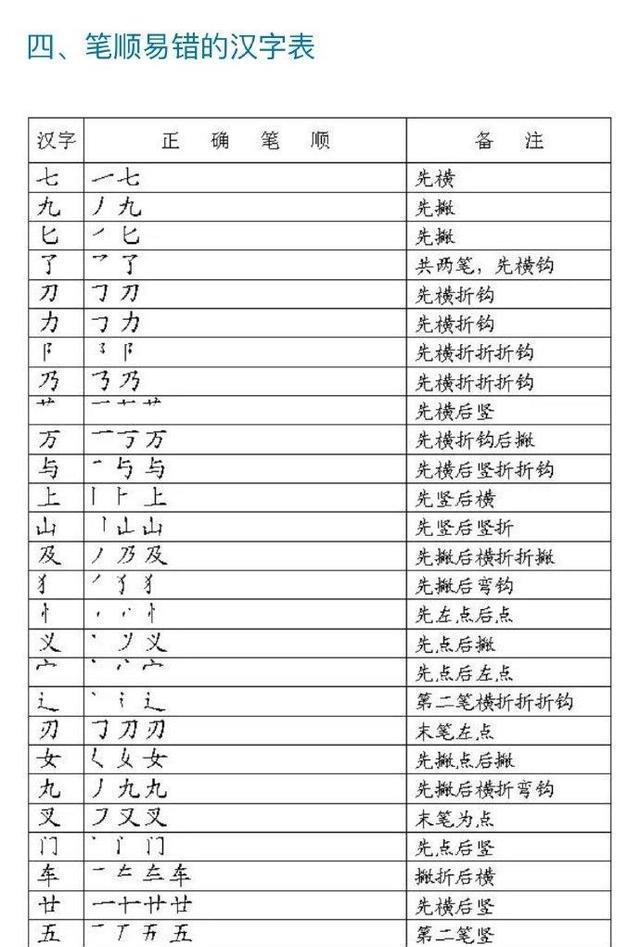 四、笔顺易错的汉字表
汉字 正确笔顺 备注
七 一七 先横
九 丿九 先撇
匕 ㇒匕 先撇
了 乛了 共两笔，先横钩
刀 𠃌刀 先横折钩
力 𠃌力 先横折钩
阝 ㇌阝 先横折折折钩
乃 ㇡乃 先横折折折钩
艹 一十艹 先横后竖
万 一丆万 先横折钩后撇
与 一与与 先横后竖折折钩
上 丨⺊上 先竖后横
山 丨山山 先竖后竖折
及 丿乃及 先撇后横折折撇
犭 ㇒犭犭 先撇后弯钩
忄 丶丷忄 先左点后点
义 丶丿义 先点后撇
宀 丶丷宀 先点后左点
辶 丶讠辶 第二笔横折折折钩
刃 𠃌刀刃 末笔左点
女 𡿨女女 先撇点后撇
丸 丿九丸 先撇后横折弯钩
叉 フ又叉 末笔为点
门 丶门 先点后竖
车 一车 撇折后横
廿 一十廿廿 先横后竖
五 一丅五五 第二笔竖